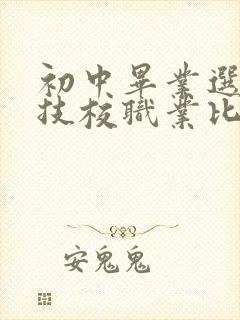 初中畢業選
技校職業比
安鬼鬼